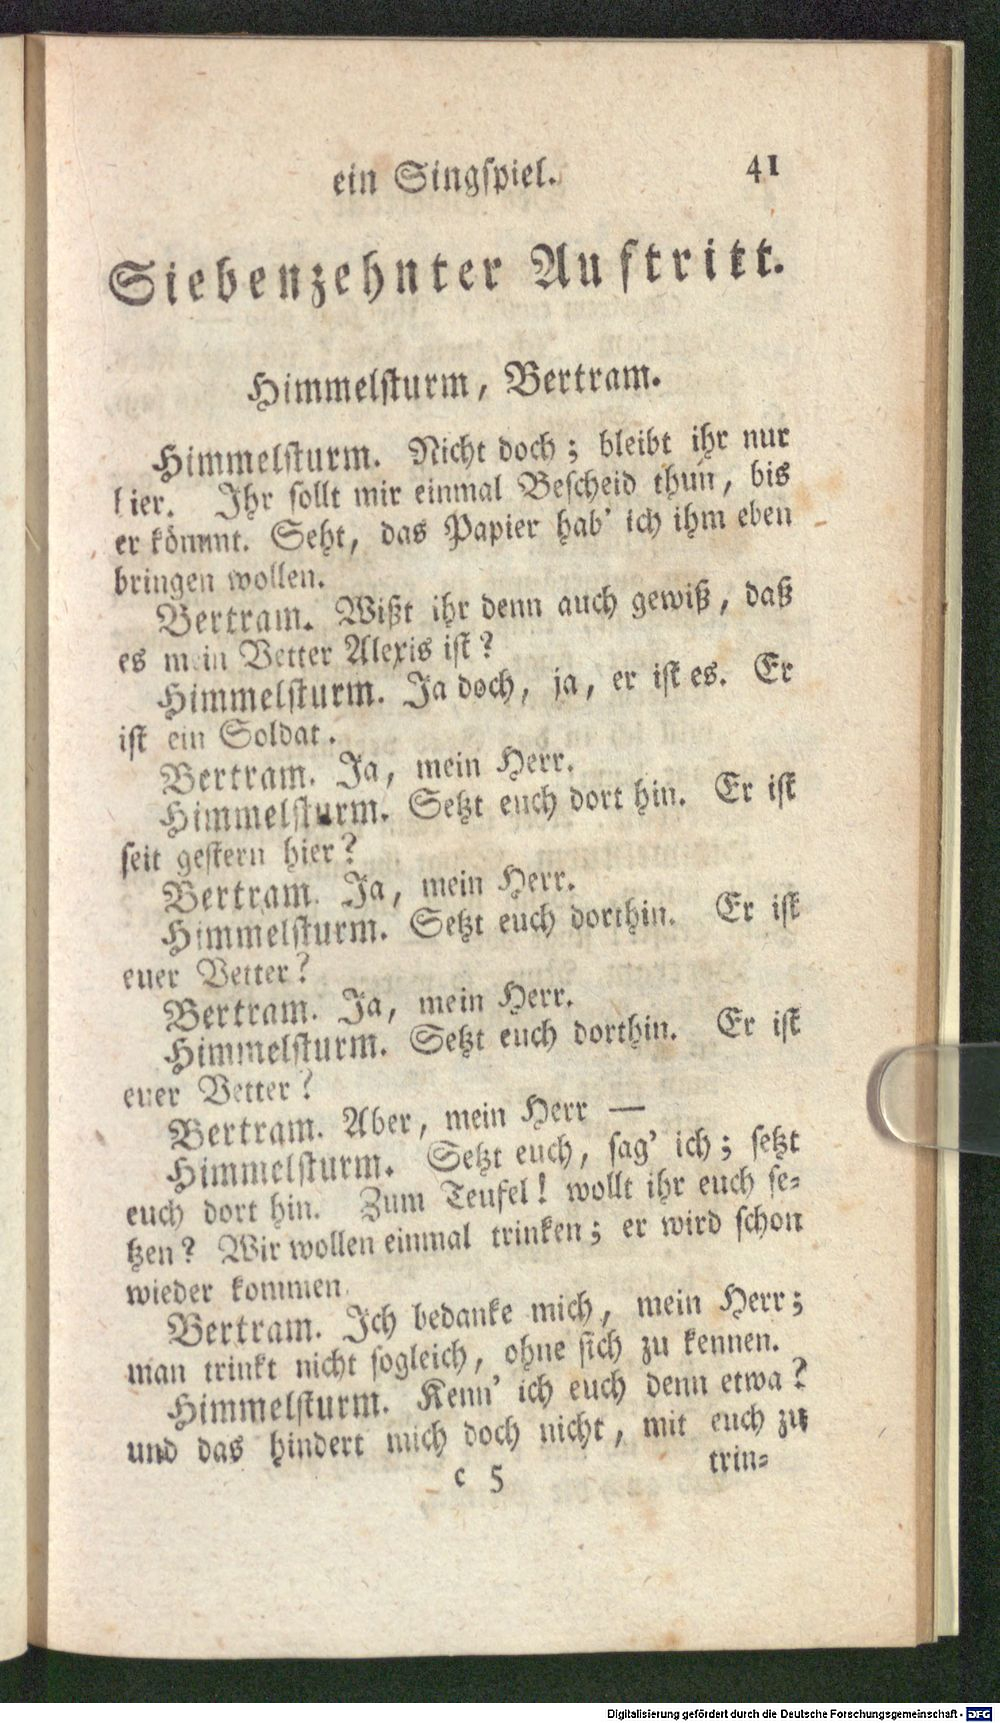 ein Singſpiel. 41
Siebenzehnter Auftritt.
Himmelſturm, Bertram.
Himmelſturm. Nicht doch; bleibt ihr nur
hier. Ihr ſollt mir einmal Beſcheid thun, bis
er kömmt. Seht, das Papier hab' ich ihm eben
bringen wollen.
Bertram. Wißt ihr denn auch gewiß, daß
es mein Vetter Alexis iſt?
Himmelſturm. Ja doch, ja, er iſt es. Er
iſt ein Soldat.
Bertram. Ja, mein Herr.
Himmelſturm. Setzt euch dort hin. Er iſt
ſeit geſtern hier?
Bertram. Ja, mein Herr.
Himmelſturm. Setzt euch dorthin. Er iſt
euer Vetter?
Bertram. Ja, mein Herr.
Himmelſturm. Setzt euch dorthin. Er iſt
euer Vetter?
Bertram. Aber, mein Herr —
Himmelſturm. Setzt euch, ſag' ich; ſetzt
euch dort hin. Zum Teufel! wollt ihr euch ſe-
tzen? Wir wollen einmal trinken; er wird ſchon
wieder kommen.
Bertram. Ich bedanke mich, mein Herr;
man trinkt nicht ſogleich, ohne ſich zu kennen.
Himmelſturm. Kenn' ich euch denn etwa?
und das hindert mich doch nicht, mit euch zu
c 5 trin-
Digitalisierung gefördert durch die Deutsche Forschungsgemeinschaft - DFG